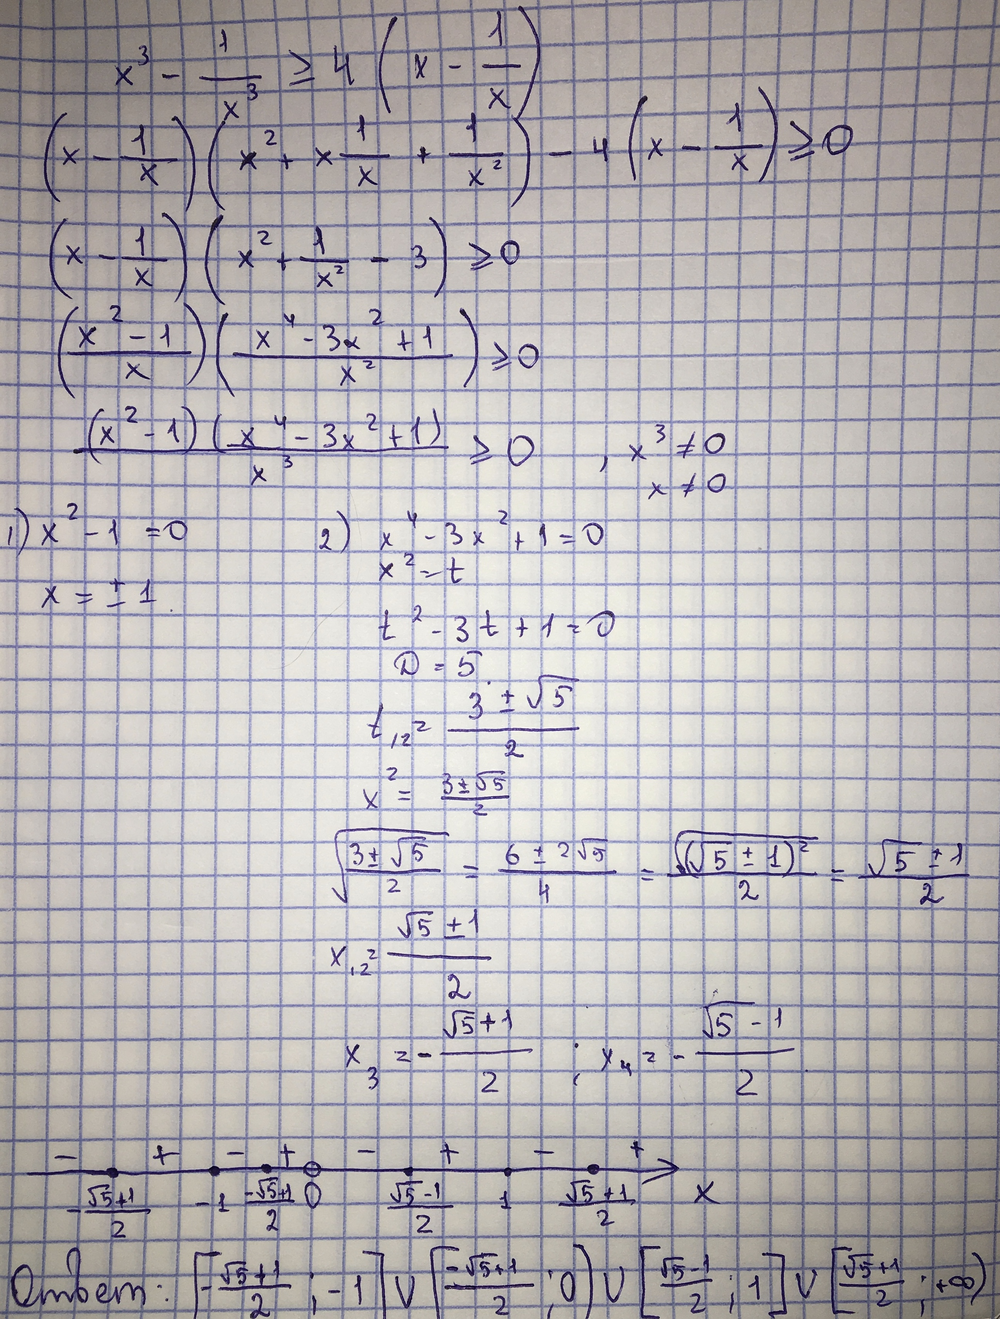 x³ - 1/x³ ≥ 4 (x - 1/x)
(x - 1/x) (x² + x 1/x + 1/x²) - 4 (x - 1/x) ≥ 0
(x - 1/x) (x² + 1/x² - 3) ≥ 0
((x² - 1)/x) ((x⁴ - 3x² + 1)/x²) ≥ 0
(x² - 1) (x⁴ - 3x² + 1)/x³ ≥ 0 , x³ ≠ 0
x ≠ 0
1) x² - 1 = 0 2) x⁴ - 3x² + 1 = 0
x² = t
x = ± 1
t² - 3t + 1 = 0
D = 5
t₁,₂ = (3 ± √5)/2
x² = (3 ± √5)/2
√((3 ± √5)/2) = (6 ± 2√5)/4 = √((√5 ± 1)²)/2 = (√5 ± 1)/2
x₁,₂ = (√5 ± 1)/2
x₃ = - (√5 + 1)/2 ; x₄ = - (√5 - 1)/2
- + - + - + - +
- (√5 + 1)/2 -1 (-√5 + 1)/2 0 (√5 - 1)/2 1 (√5 + 1)/2 x
Ответ: [- (√5 + 1)/2 ; -1] ∪ [(-√5 + 1)/2 ; 0) ∪ [(√5 - 1)/2 ; 1] ∪ [(√5 + 1)/2 ; +∞)